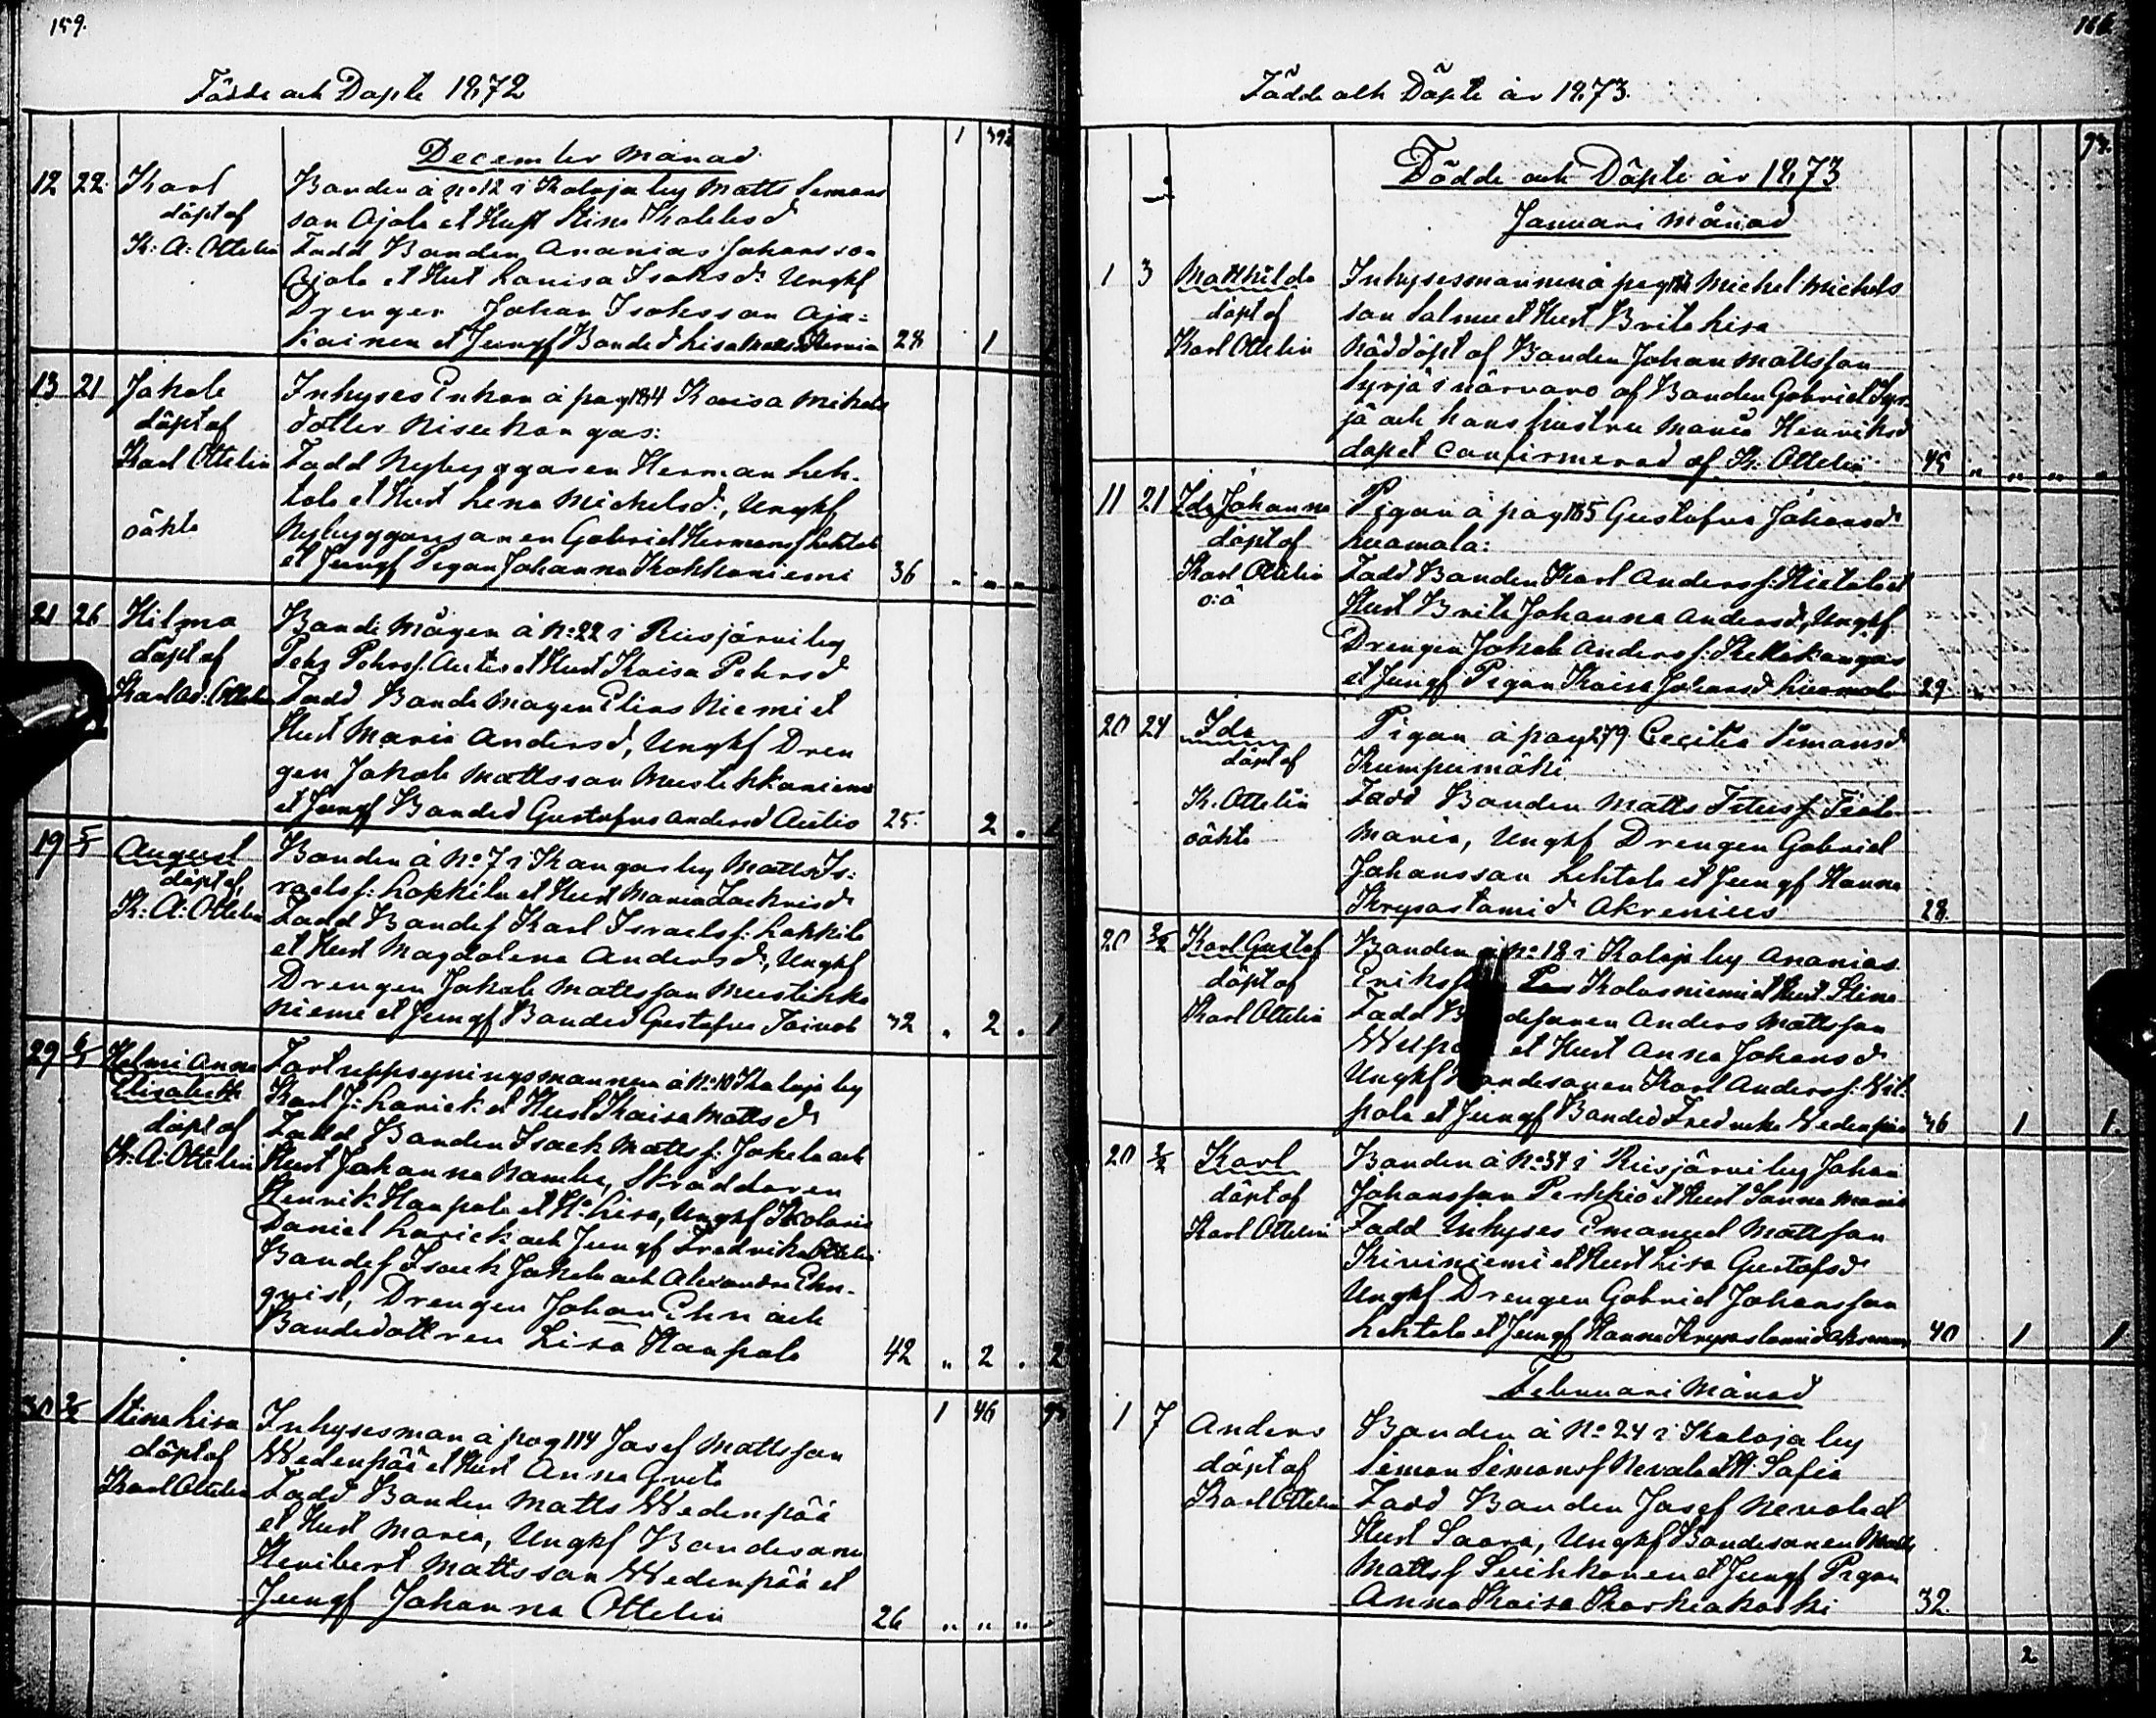 159.
Födde och Döpte 1872
December Månad
12 22. Karl Bonden å No 12 i Kalaja by Matts Simons
döpt af son Ojala et Hust Stina Kalebsd
K: A: Ottelin Fadd Bonden Ananias Johansson
Ojala et Hust Lovisa Isaksd: Ungkf
Drengen Johan Isaksson Oja-
Kainen et Jungf Bonded Lisa 28 1
13 21 Jakob Inhyses Enkan å pag 184 Kaisa Mikels
döpt af dotter Niskakangas:
Karl Ottelin Fadd Nybyggaren Herman Leh-
tola et Hust Lena Michelsd:, Ungkf
oäkta Nybyggaresonen Gabriel Hermansf Lehtola
et Jungf Pigan Johanna Kokkoniemi 36 " " "
21 26 Hilma Bonde Mågen å No: 22 i Reisjärvi by
döpt af Pehr Pehrsf. Autio et Hust Kaisa Pehrsd
Karl Ad: Ottelin Fadd Bonde Mågen Elias Niemi et
Hust Maria Andersd, Ungkf Dren
gen Jakob Mattsson Mustikkaniemi
et Jungf Bonded Gustafva Andersd Autio 25. 2
19 5/1 August Bonden å No 7 i Kangas by Matts Is:
döpt af raelsf: Lapkila et Hust Maria Zachrisd:
K: A: Ottelin Fadd Bondef Karl Israelsf: Lakkila
et Hust Magdalena Andersd:, Ungkf
Drengen Jakob Mattsson Mustikka
niemi et Jungf Bonded Gustafva Toivob 32 " 2 . 1
29 6/1 Helmi Anna Förtuppsyningsmannen å No: 10 Kalaja by
Elisabeth Karl J: Lavick: et Hust Kaisa Mattsd
döpt af Fadd Bonden Isack Mattsf: Jokela och
K: A: Ottelin Hust Johanna Namba, Skräddaren
Henrik Haapala et H: Lisa, Ungkf Skolaris
Daniel Lavick och Jungf Fredrika Ottelin
Bondef Isack Jokela och Alexandra Ehn-
qvist, Drengen Johan Ehn och
Bondedottren Lisa Haapala 42 " 2 . 2
1 46
30 2/2 Stina Lisa Inhysesman å pag 114 Josef Mattsson
döpt af Wedenpää et Hust Anna Greta
Karl Ottelin Fadd Bonden Matts Wedenpää
et Hust Maria, Ungkf Bondesone
Heribert Mattsson Wedenpää et
Jungf Johanna Ottelin 26 " " " "
Födde och Döpte år 1873.
Födde och Döpte år 1873
Januari Månad
1 3 Mathilda Inhysesmannen å pag Michel Michels
döpt af son Salmu et Hust Brita Lisa
Karl Ottelin Nöddöpt af Bonden Johan Mattsson
Syrjä i närvaro af Bonden Gabriel Syr-
jä och hans hustru Maria Henriksd
dopet confirmerad af K: Ottelin 45 " " " "
11 21 Ida Johanna Pigan å pag 185 Gustafva Johansd:
döpt af Luomala:
Karl Ottelin Fadd Bonden Karl Andersf: Hietala et
o:ä Hust Brita Johanna Andersd, Ungkf
Drengen Jakob Andersf: Kellokangas
et Jungf Pigan Kaisa Johansd Luomala 29.
20 24 Ida Pigan å pag 279 Cecilia Simonsd
döpt af Kumpumäki
K. Ottelin Fadd Bonden Matts Titusf:
oäkta Maria, Ungkf Drengen Gabriel
Johansson Lehtola et Jungf Hanna
Krysostomid Akrenius 28.
20 2/2 Karl Gustaf Bonden å No 18 i Kalaja by Ananias
döpt af Kolasniemi et Hust Stina
Karl Ottelin Fadd Bondesonen Anders Mattsson
et Hust Anna Johansd
Ungkf Bondesonen Karl Andersf: Wil-
pola et Jungf Bonded Fredrika Wedenpää 36 1 1.
20 2/2 Karl Bonden å No: 34 i Reisjärvi by Johan
döpt af Johansson Perkkiö et Hust Sanna Maria
Karl Ottelin Fadd Inhyses Emanuel Mattsson
Kiviniemi et Hust Lisa Gustafsd
Ungkf Drengen Gabriel Johansson
Lehtola et Jungf Hanna Krysostomid 40 1 1
Februari Månad
1 7 Anders Bonden å No 24 i Kalaja by
döpt af Simon Simonsf Nevala et H: Sofia
Karl Ottelin Fadd Bonden Josef Nevala et
Hust Saara, Ungkf Bondesonen Matts
Mattsf Luikkonen et Jungf Pigan
Anna Kaisa Karhiakoski 32.
2